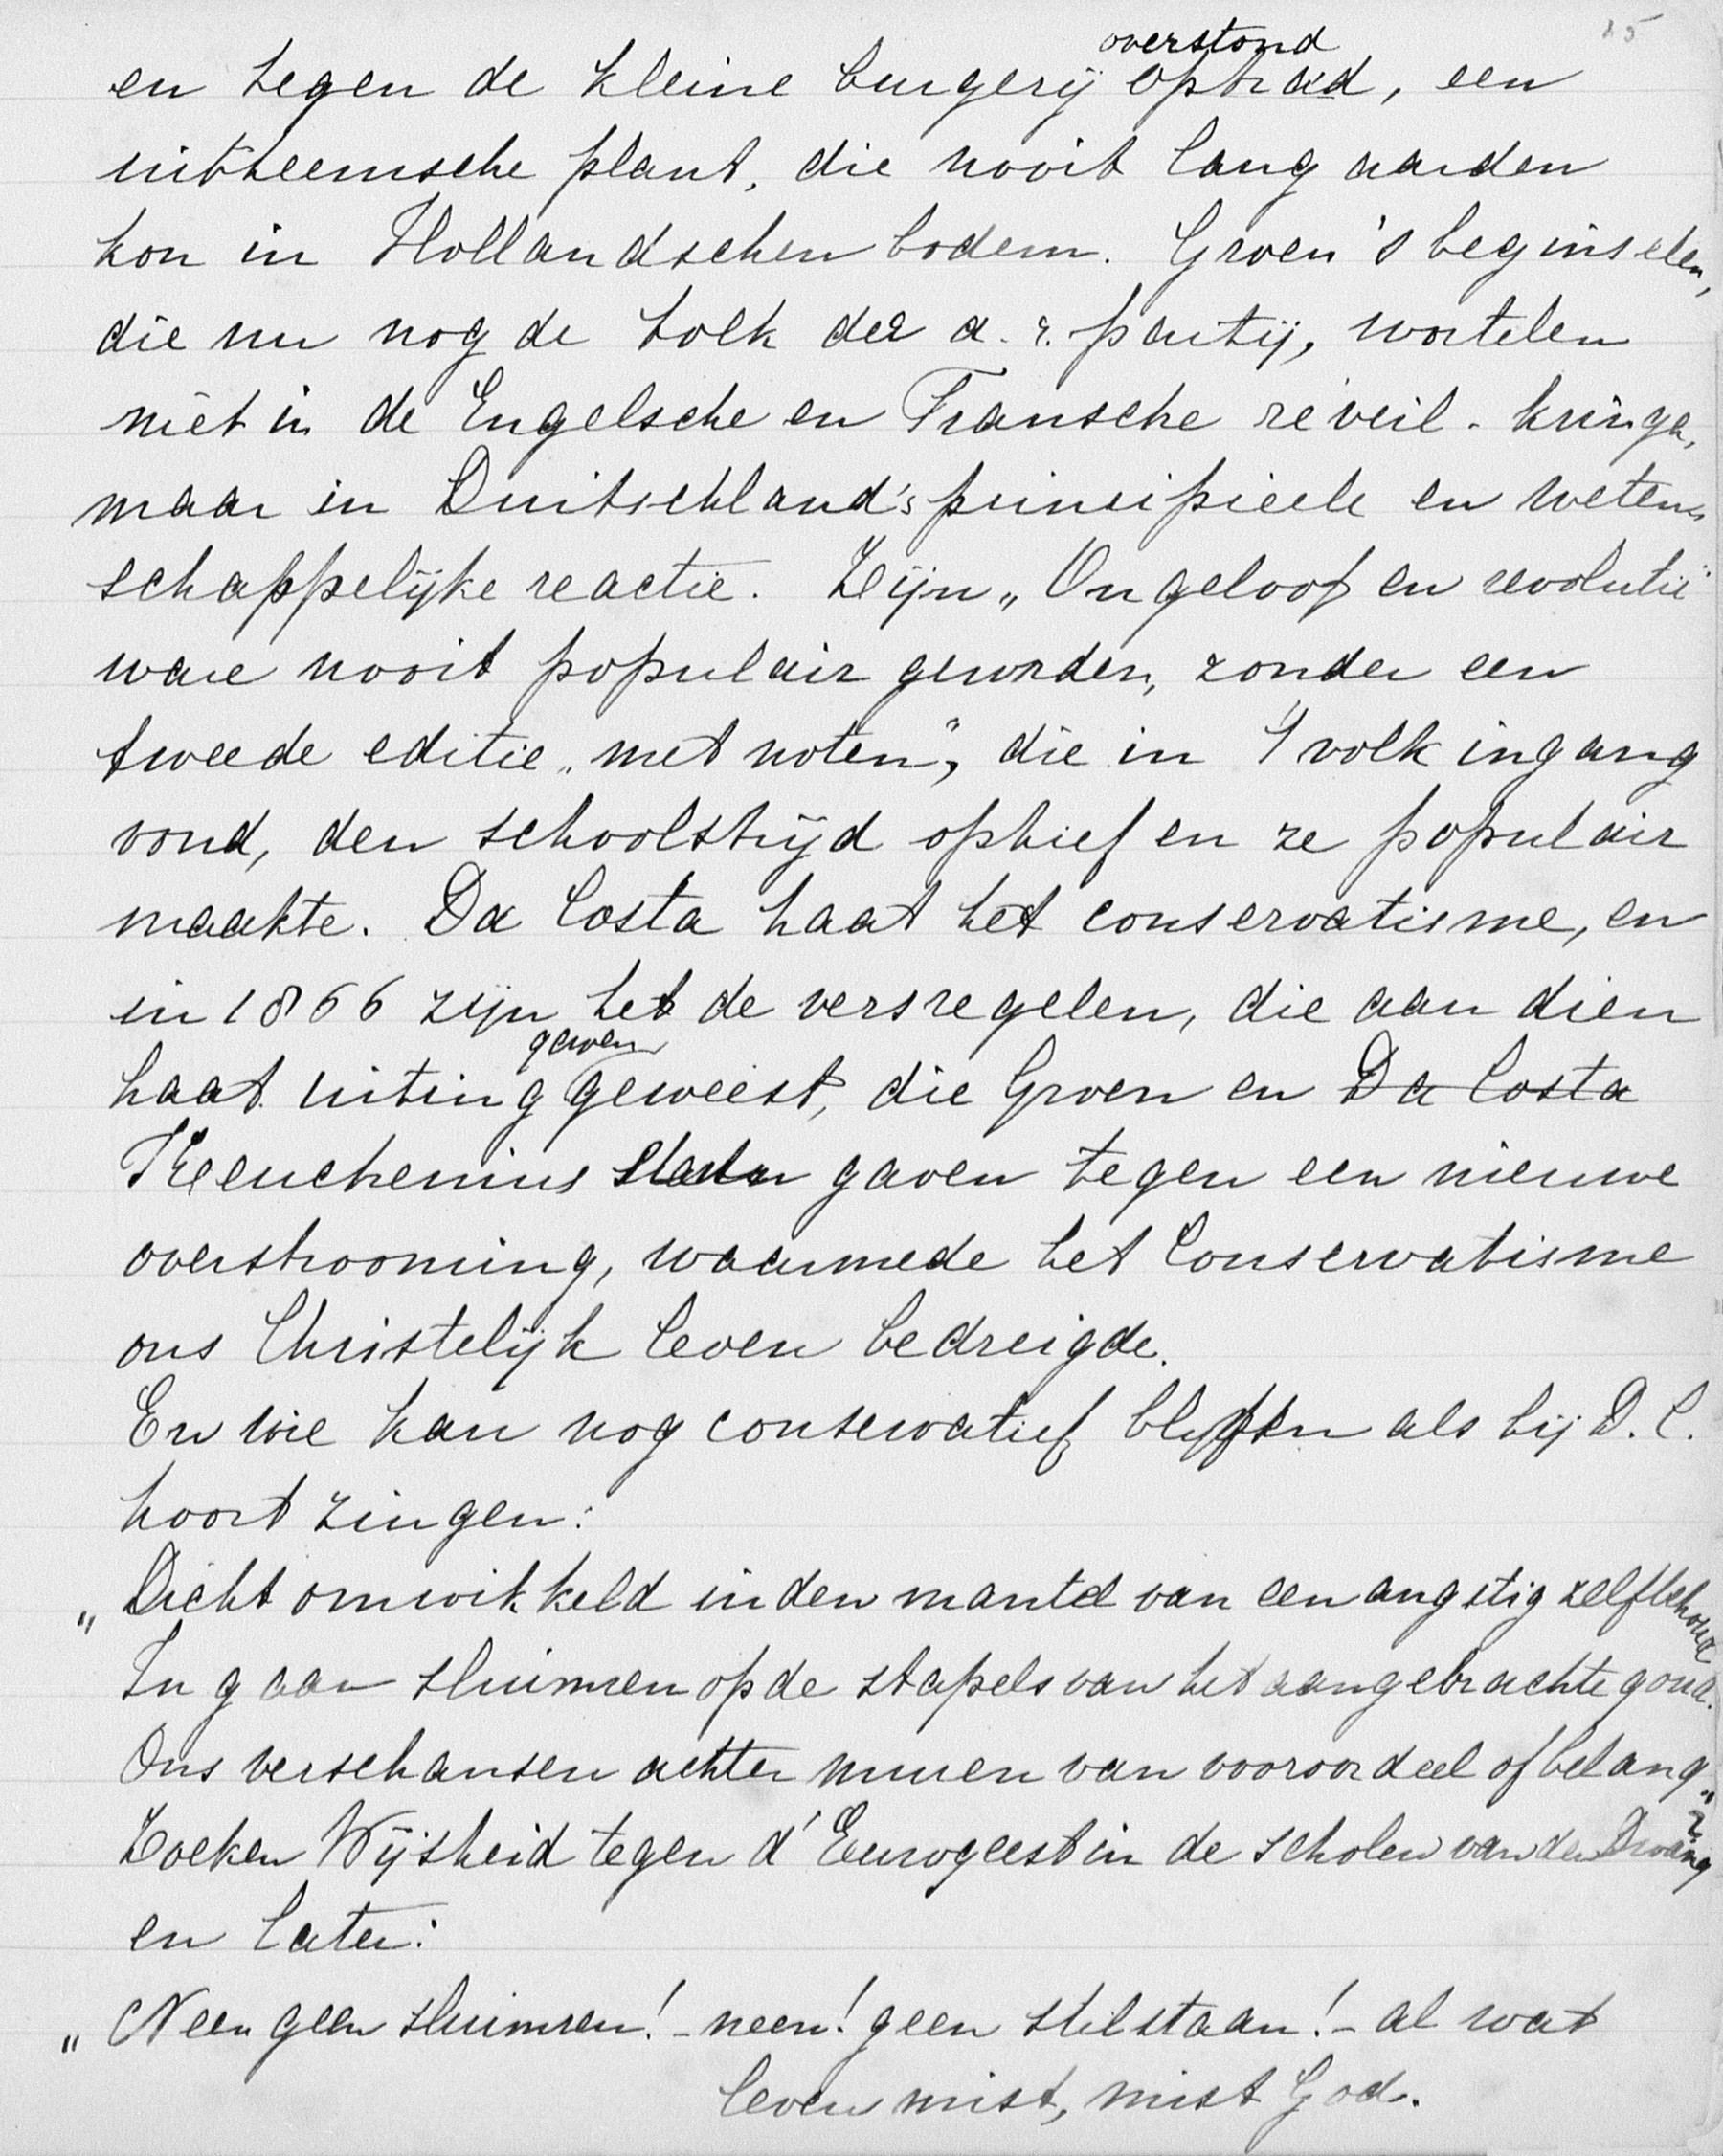 15
overstond
en tegen de kleine burgerij optrad, een
uitheemsche plant, die nooit lang aarden
kon in Hollandschen bodem. Groen's beginselen,
die nu nog de tolk der a. r. partij, wortelen
niet in de Engelsche en Fransche reveil-kringen,
maar in Duitschland's principieele en weten-
schappelijke reactie. Zijn „Ongeloof en revolutie"
ware nooit populair geworden, zonder een
tweede editie „met noten", die in 't volk ingang
vond, den schoolstrijd ophief en ze populair
maakte. Da Costa haat het conservatisme, en
in 1866 zijn het de versregelen, die aan dien
gaven
haat uiting geweest, die Groen en Da Costa
Keuchenius gaven tegen een nieuwe
overstrooming, waarmede het Conservatisme
ons Christelijk leven bedreigde.
En wie kan nog conservatief blijven als hij D. C.
hoort zingen:
„Dicht omwikkeld in den mantel van een angstig zelfbehoud
In gaan sluimren op de stapels van het aangebrachte goud.
Ons verschansen achter muren van vooroordeel of belang
Zoeken Wijsheid tegen d' Eeuwgeest in de scholen van den Dwang"?
en later:
„Neen geen sluimren! - neen! geen stilstaan! - al wat
leven mist, mist God.